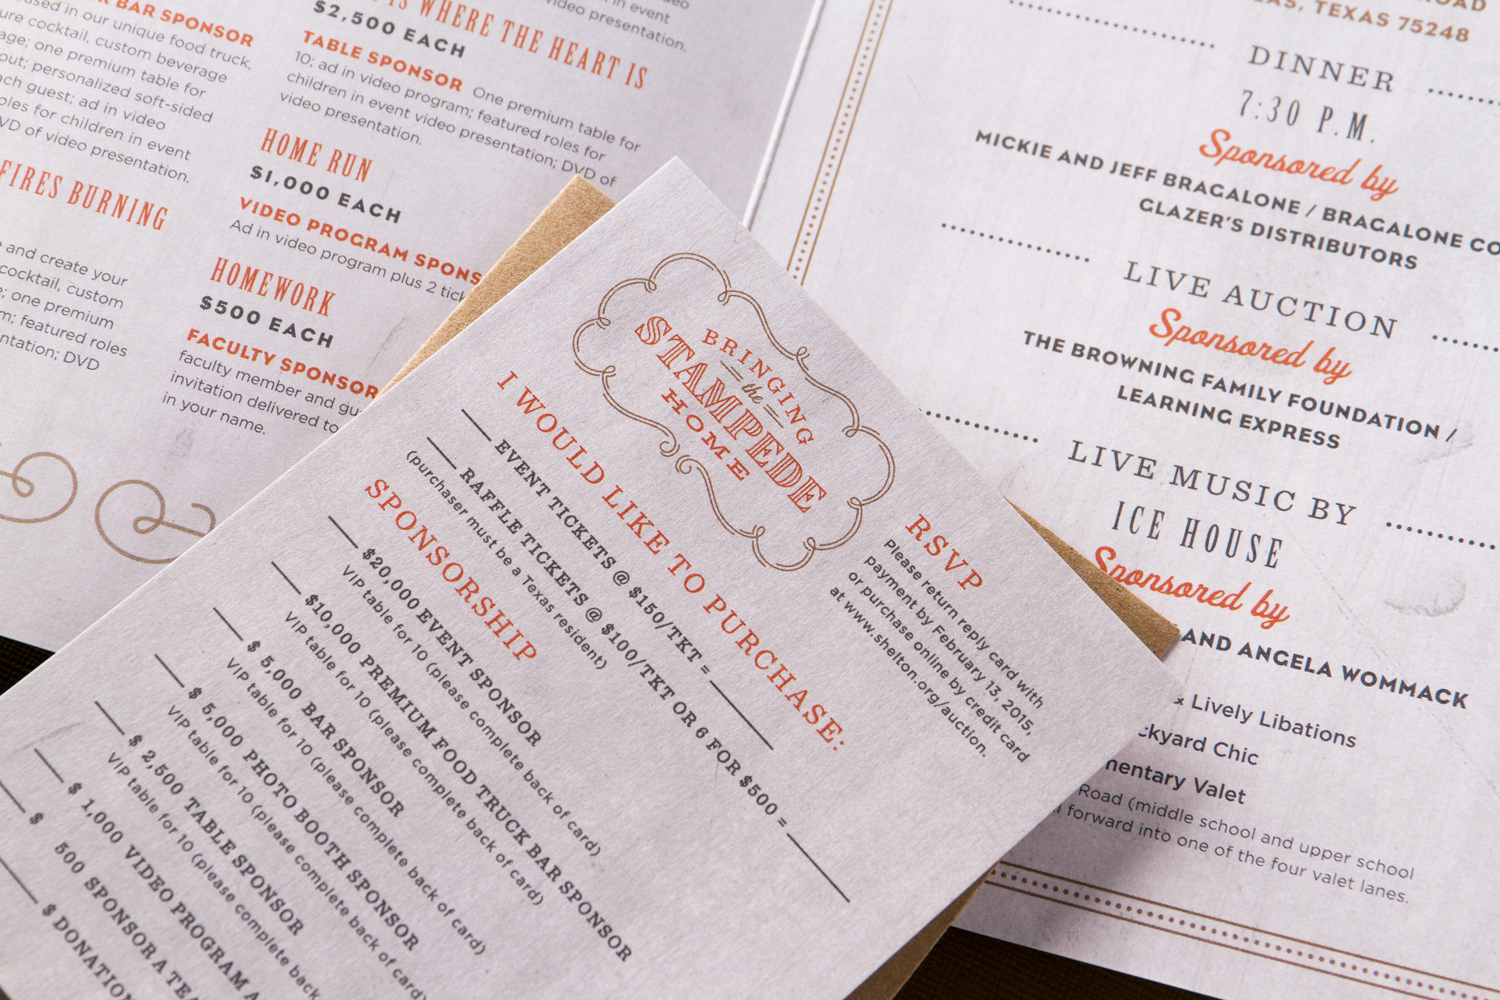 BAR SPONSOR
in our unique food truck,
cocktail, custom beverage
one premium table for
personalized soft-sided
guest; ad in video
for children in event
of video presentation.
FIRES BURNING
and create your
cocktail, custom
one premium
featured roles
DVD
in event
video presentation.
IS WHERE THE HEART IS
$2,500 EACH
TABLE SPONSOR One premium table for
10; ad in video program; featured roles for
children in event video presentation; DVD of
video presentation.
HOME RUN
$1,000 EACH
VIDEO PROGRAM
Ad in video program plus 2
HOMEWORK
$500 EACH
FACULTY SPONSOR
faculty member and
invitation delivered to
in your name.
BRINGING
the
STAMPEDE
HOME
I WOULD LIKE TO PURCHASE:
EVENT TICKETS @ $150/TKT =
RAFFLE TICKETS @ $100/TKT OR 6 FOR $500 =
(purchaser must be a Texas resident)
SPONSORSHIP
$20,000 EVENT SPONSOR
VIP table for 10 (please complete back of card)
$10,000 PREMIUM FOOD TRUCK BAR SPONSOR
VIP table for 10 (please complete back of card)
$ 5,000 BAR SPONSOR
VIP table for 10 (please complete back of card)
$ 5,000 PHOTO BOOTH SPONSOR
VIP table for 10 (please complete back of card)
$ 2,500 TABLE SPONSOR
VIP table for 10 (please complete back
$ 1,000 VIDEO PROGRAM
$ 500 SPONSOR A
$ DONATION
RSVP
Please return reply card with
payment by February 13, 2015,
or purchase online by credit card
at www.shelton.org/auction.
ROAD
TEXAS 75248
DINNER
7:30 P.M.
Sponsored by
MICKIE AND JEFF BRAGALONE / BRAGALONE
GLAZER'S DISTRIBUTORS
LIVE AUCTION
Sponsored by
THE BROWNING FAMILY FOUNDATION /
LEARNING EXPRESS
LIVE MUSIC BY
ICE HOUSE
Sponsored by
AND ANGELA WOMMACK
& Lively Libations
Chic
Valet
Road (middle school and upper school
forward into one of the four valet lanes.